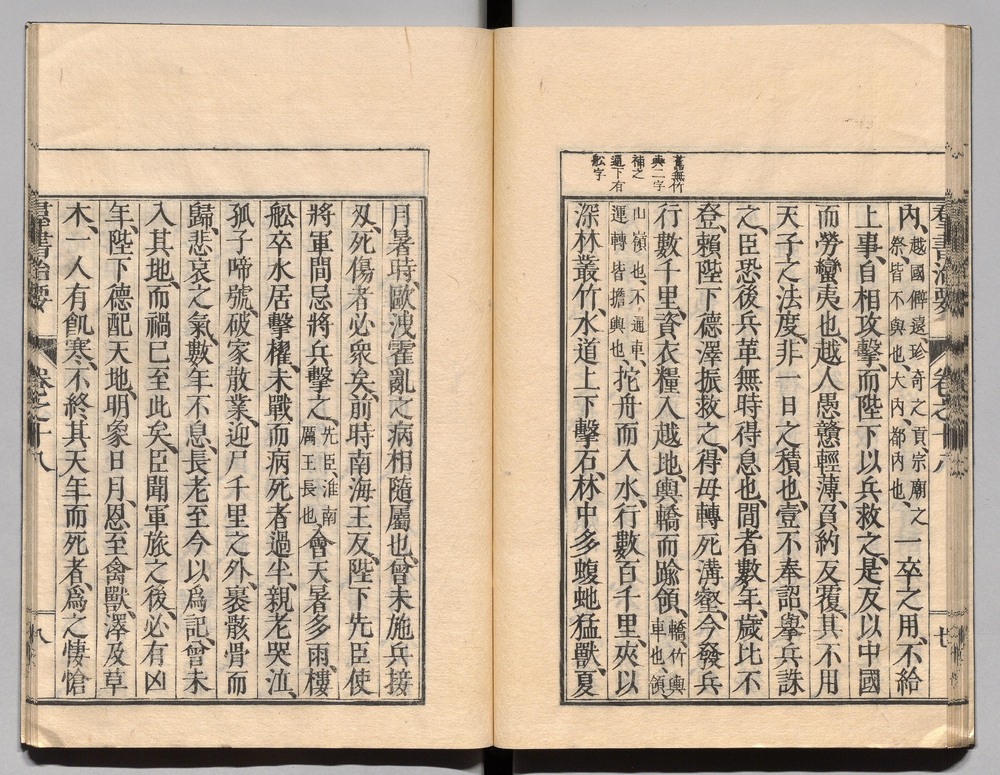 群書治要　卷之十八　廿
舊無竹
輿二字
補之
逼下有
舩字
內、越國僻遠珍奇之貢、宗廟之祭、皆不與也、大內、都內也、一卒之用、不給
上事、自相攻擊、而陛下以兵救之、是反以中國
而勞蠻夷也、越人愚戇輕薄、負約反覆、其不用
天子之法度、非一日之積也、壹不奉詔、擧兵誅
之、臣恐後兵革無時得息也、間者數年、歲比不
登、賴陛下德澤振救之、得毋轉死溝壑、今發兵
行數千里、資衣糧入越地、輿轎而踰領、轎竹輿車也、領
山嶺也、不通車、運轉皆擔輿也、拕舟而入水、行數百千里、夾以
深林叢竹、水道上下擊石、林中多蝮虵猛獸、夏
月暑時、歐洩霍亂之病相隨屬也、曾未施兵接
刄、死傷者必衆矣、前時南海王反、陛下先臣使
將軍間忌將兵擊之、先臣淮南厲王長也、會天暑多雨、樓
舩卒水居擊櫂、未戰而病死者過半、親老哭泣、
孤子啼號、破家散業、迎尸千里之外、裹骸骨而
歸、悲哀之氣、數年不息、長老至今以爲記、曾未
入其地、而禍已至此矣、臣聞軍旅之後、必有凶
年、陛下德配天地、明象日月、恩至禽獸、澤及草
木、一人有飢寒、不終其天年而死者、爲之悽愴
群書治要　卷之十八　八